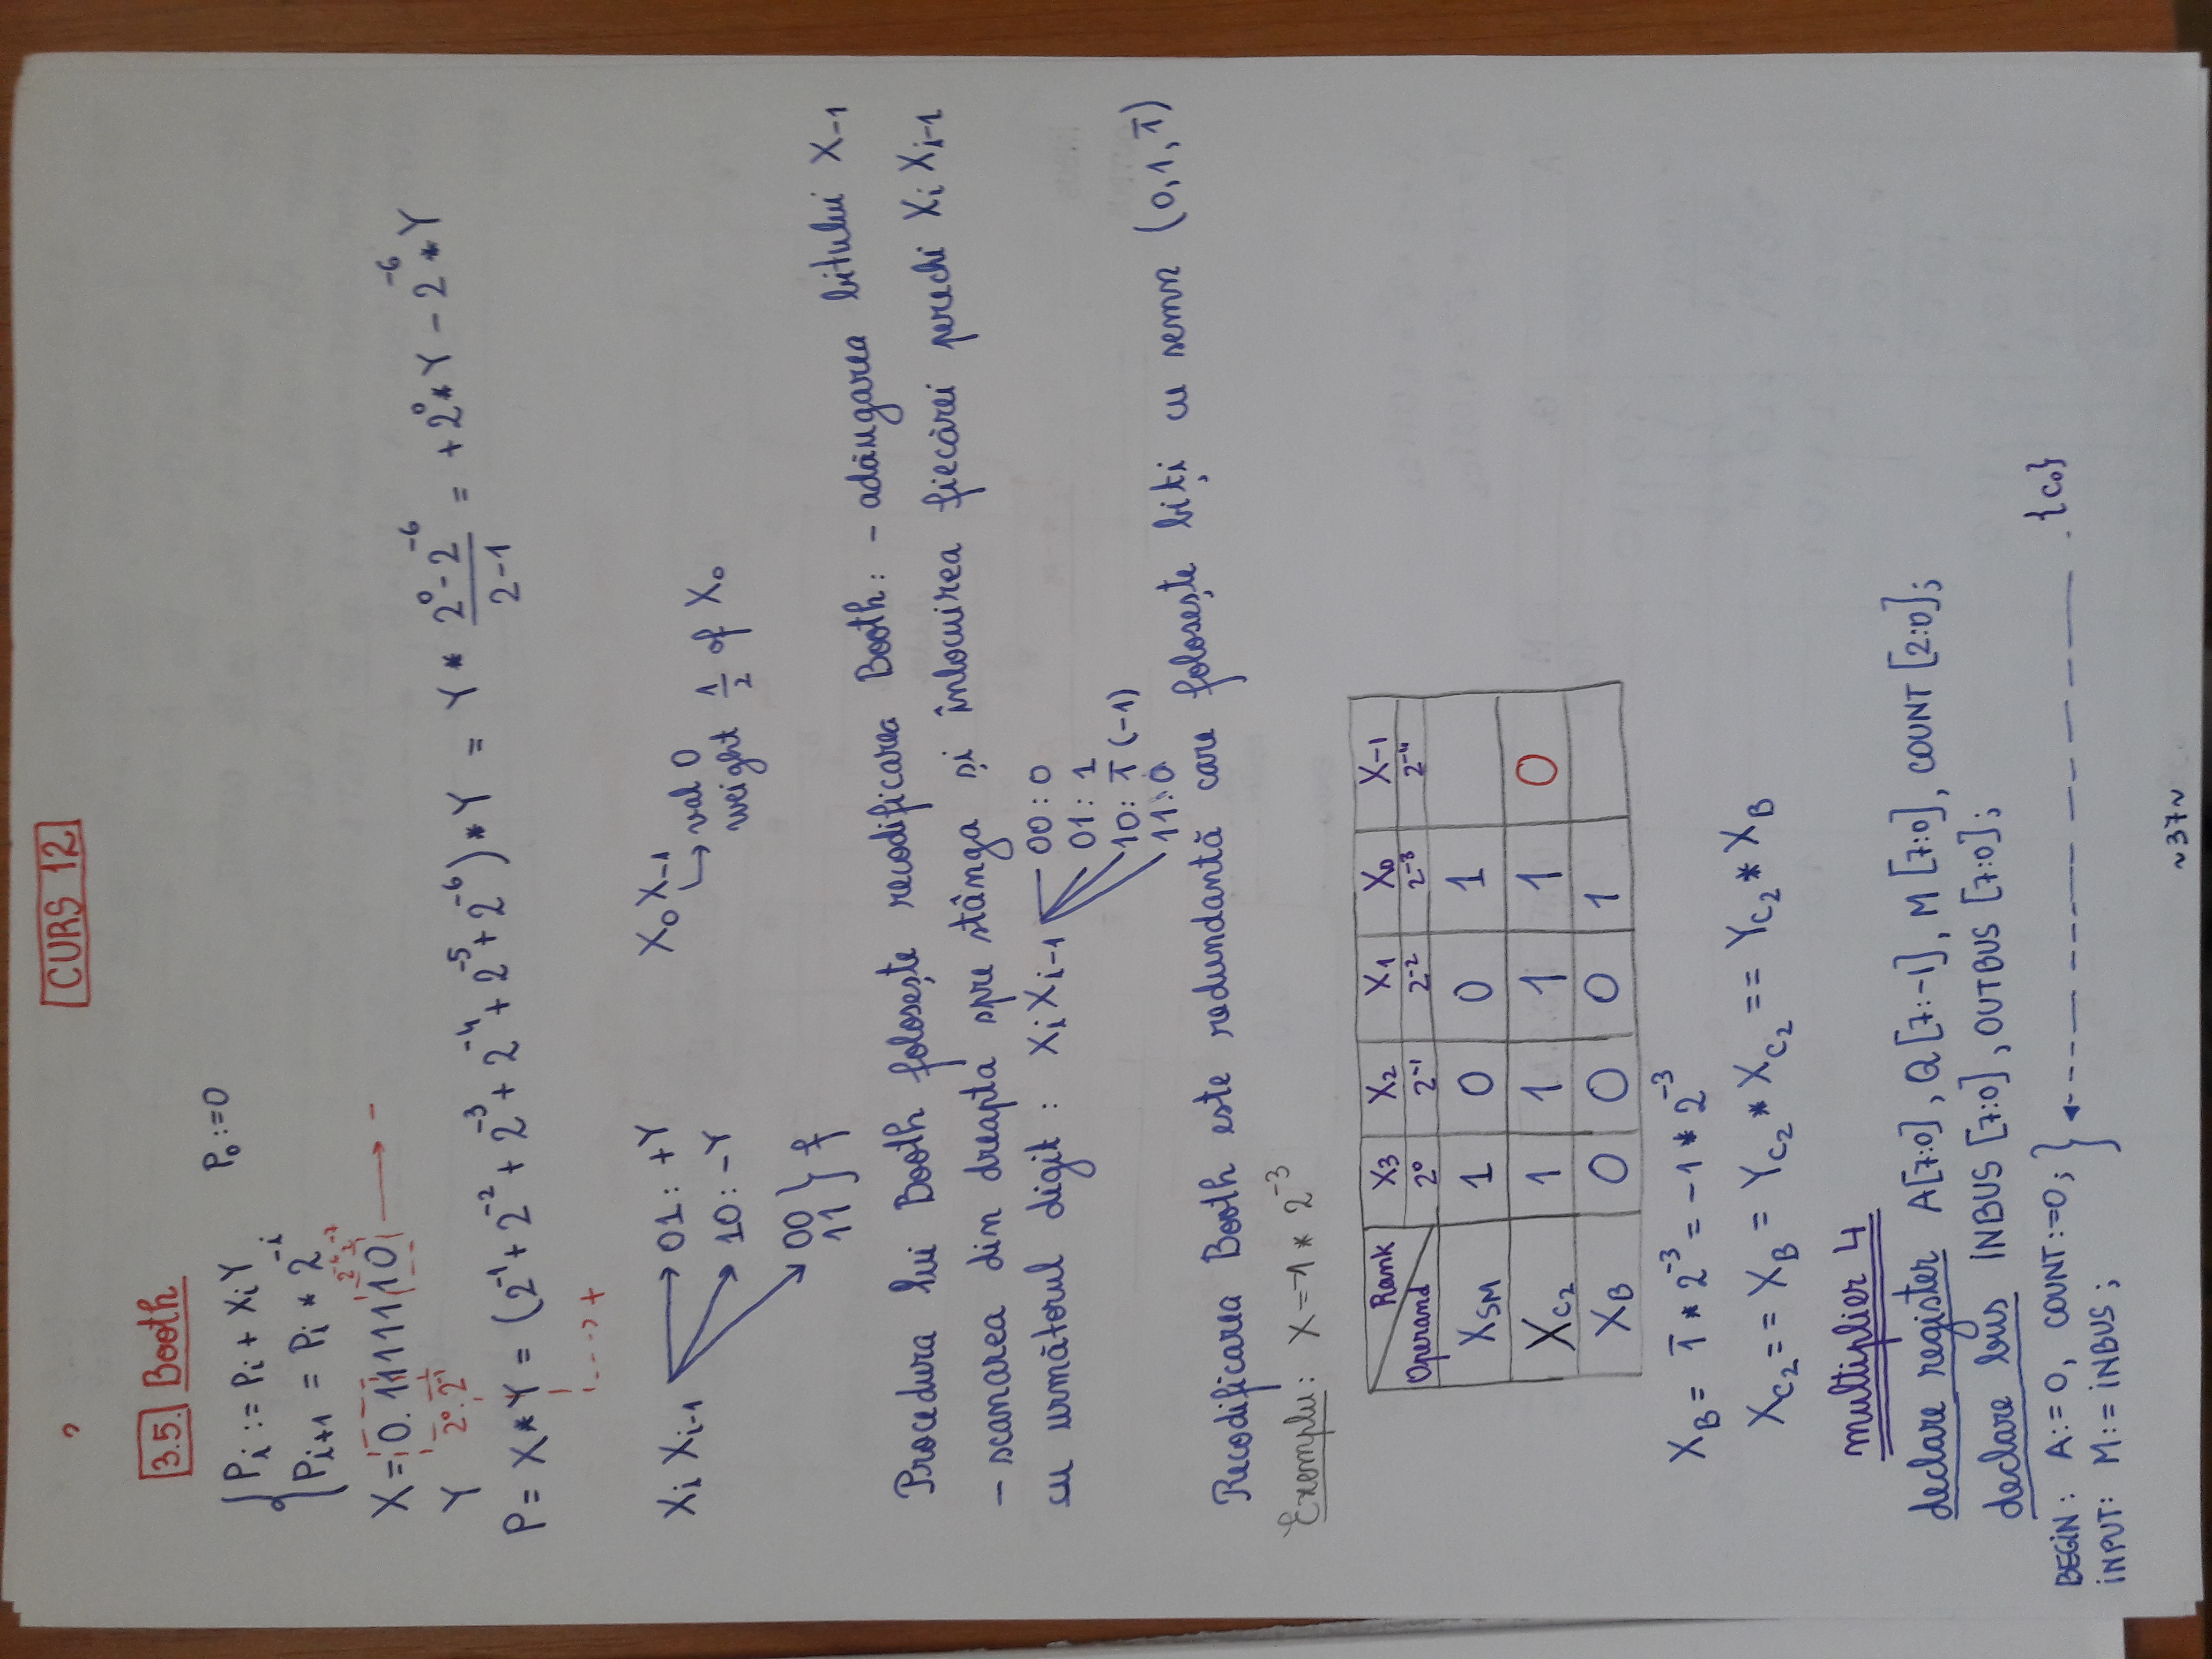 CURS 12
3.5. Booth
P_i := P_i + X_i Y    P_0 := 0
P_{i+1} = P_i * 2^{-i}
2^{-6} 2^{-7}
X = 0.1111110 → -
Y 2^0 . 2^{-1}
P = X * Y = (2^{-1} + 2^{-2} + 2^{-3} + 2^{-4} + 2^{-5} + 2^{-6}) * Y = Y * (2^0 - 2^{-6})/(2-1) = +2^0 * Y - 2^{-6} * Y
→ +
X_i X_{i-1} → 01: +Y    X_0 X_{-1}
10: -Y    ↳ val 0
weight 1/2 of X_0
00
11 }
Procedura lui Booth folosește recodificarea Booth: - adăugarea bitului X_{-1}
- scanarea din dreapta spre stânga și înlocuirea fiecărei perechi X_i X_{i-1}
cu următorul digit : X_i X_{i-1} 00 : 0
01 : 1
10: 1̄ (-1)
11: 0
Recodificarea Booth este redundantă care folosește biți cu semn (0, 1, 1̄)
Exemplu: X = -1 * 2^{-3}
Rank X_3 X_2 X_1 X_0 X_{-1}
Operand 2^0 2^{-1} 2^{-2} 2^{-3} 2^{-4}
X_SM 1 0 0 1
X_C2 1 1 1 1 0
X_B 0 0 0 1
X_B = 1̄ * 2^{-3} = -1 * 2^{-3}
X_C2 == X_B = Y_C2 * X_C2 == Y_C2 * X_B
multiplier 4
declare register A[7:0], Q[7:-1], M[7:0], COUNT[2:0];
declare bus INBUS [7:0], OUTBUS [7:0];
BEGIN: A:= 0, COUNT:=0; } {c_0}
INPUT: M:= INBUS ;
~37~